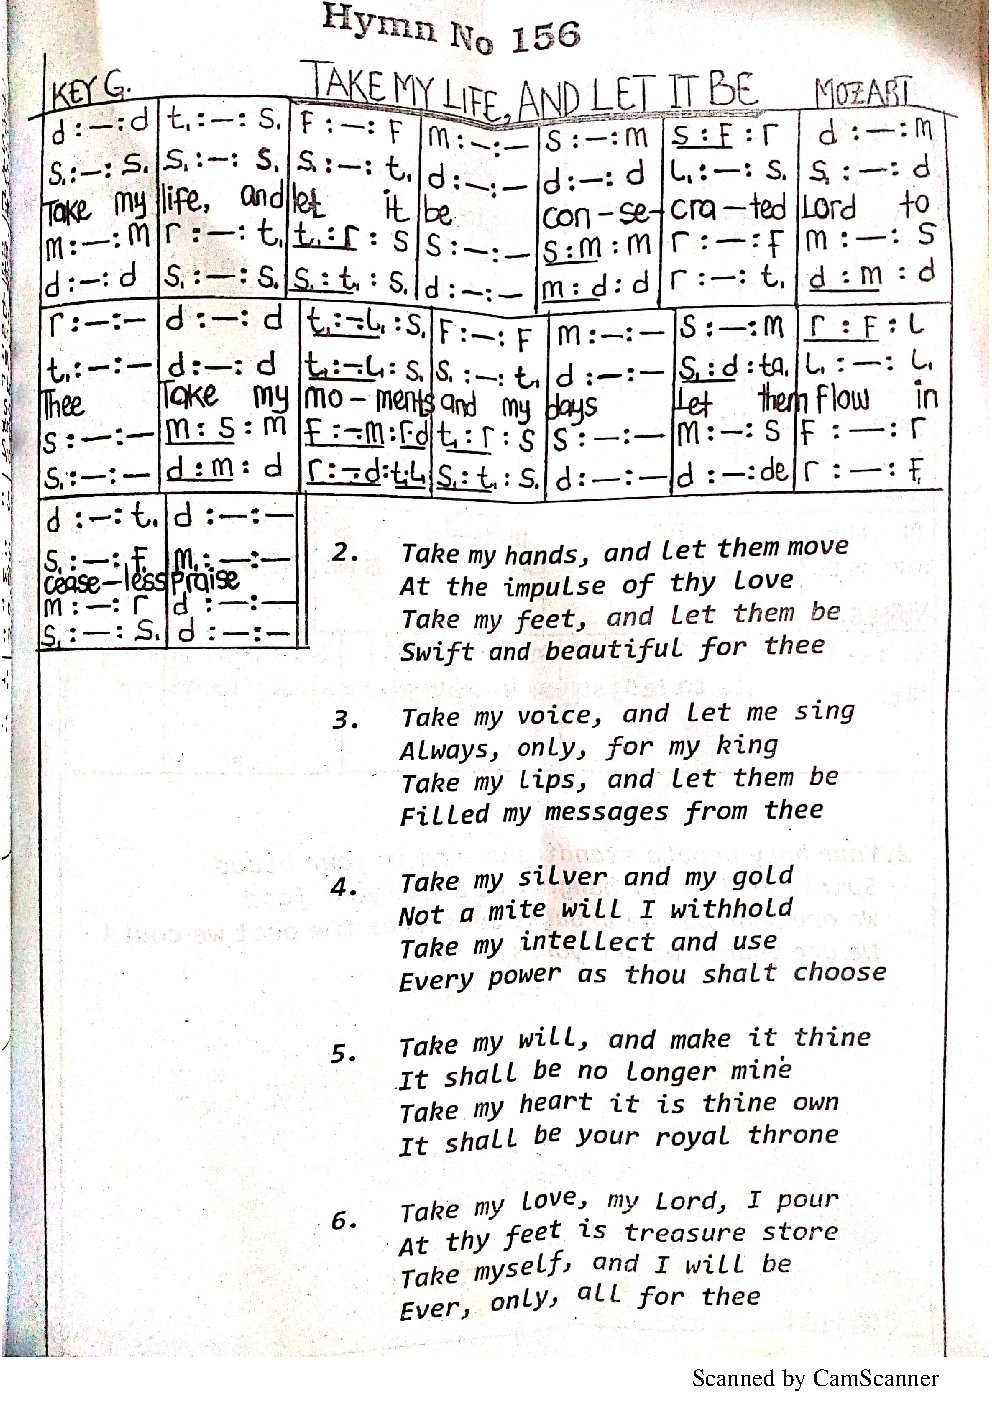 Hymn No 156
KEY G. TAKE MY LIFE, AND LET IT BE MOZART
d :—: d | t, :—: s, | F :—: F | m :—:— | s :—: m | s : F : r | d :—: m
s, :—: s, | s, :—: s, | s, :—: t, | d :—:— | d :—: d | L, :—: s, | s, :—: d
Take my life, and let it be con-se-cra-ted Lord to
m :—: m | r :—: t, | t, : r : s | s :—:— | s : m : m | r :—: F | m :—: s
d :—: d | s, :—: s, | s, : t, : s, | d :—:— | m : d : d | r :—: t, | d : m : d
r :—:— | d :—: d | t, :—L, : s, | F :—: F | m :—:— | s :—: m | r : F : L
t, :—:— | d :—: d | t, :—L, : s, | s, :—: t, | d :—:— | s, : d : ta, | L, :—: L,
Thee Take my mo-ments and my days Let them flow in
s :—:— | m : s : m | F :—m : r d | t, : r : s | s :—:— | m :—: s | F :—: r
s, :—:— | d : m : d | r :—d : t, L, | s, : t, : s, | d :—:— | d :—: de | r :—: F,
d :—: t, | d :—:—
s, :—: F, | m, :—:—
cease-less praise
m :—: r | d :—:—
s, :—: s, | d :—:—
2. Take my hands, and let them move
At the impulse of thy love
Take my feet, and let them be
Swift and beautiful for thee
3. Take my voice, and let me sing
Always, only, for my king
Take my lips, and let them be
Filled my messages from thee
4. Take my silver and my gold
Not a mite will I withhold
Take my intellect and use
Every power as thou shalt choose
5. Take my will, and make it thine
It shall be no longer mine
Take my heart it is thine own
It shall be your royal throne
6. Take my love, my Lord, I pour
At thy feet is treasure store
Take myself, and I will be
Ever, only, all for thee
Scanned by CamScanner